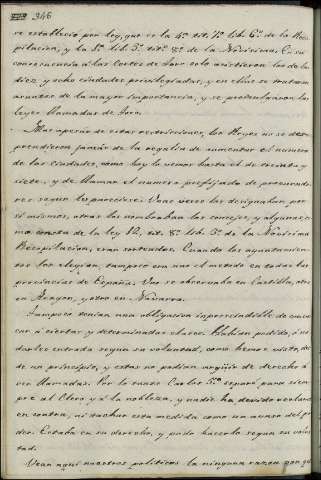 346
se estableció por ley, que es la 4ª tit. 7º lib. 6º de la Reco
pilacion, y la 5ª lib. 3º tit. 8º de la Novisima. En su
consecuencia á las Cortes de Toro solo asistieron las de las
diez y ocho ciudades privilegiadas, y en ellas se trataron
asuntos de la mayor importancia, y se promulgaron las
leyes llamadas de Toro.
Mas apesar de estas restricciones, los Reyes no se des
prendieron jamás de la regalía de aumentar el número
de las ciudades, como hoy lo vemos hasta el de treinta y
siete, y de llamar el numero prefijado de procurado
res segun les pareciese. Unas veces los designaban por
sí mismos, otras los nombraban los consejos, y algunas co
mo consta de la ley 12, tit. 8º lib. 3º de la Novisima
Recopilacion, eran sorteados. Cuando los ayuntamien
tos los elegian, tampoco era uno el metodo en todas las
provincias de España. Uno se observaba en Castilla, otro
en Aragon, y otro en Navarra.
Tampoco tenian una obligacion imprescindible de convo
car á ciertas y determinadas clases. Habian podido, ó no
darles entrada segun su voluntad, como hemos visto, des
de un principio, y estas no podian argüir de derecho á
ser llamadas. Por lo tanto Carlos 5º separó para siem
pre al Clero y á la nobleza, y nadie ha debido reclamar
en contra, ni tachar esta medida como un abuso del po
der. Estaba en su derecho, y pudo hacerlo segun su volun
tad.
Vean aqui nuestros politicos la ninguna razon por que